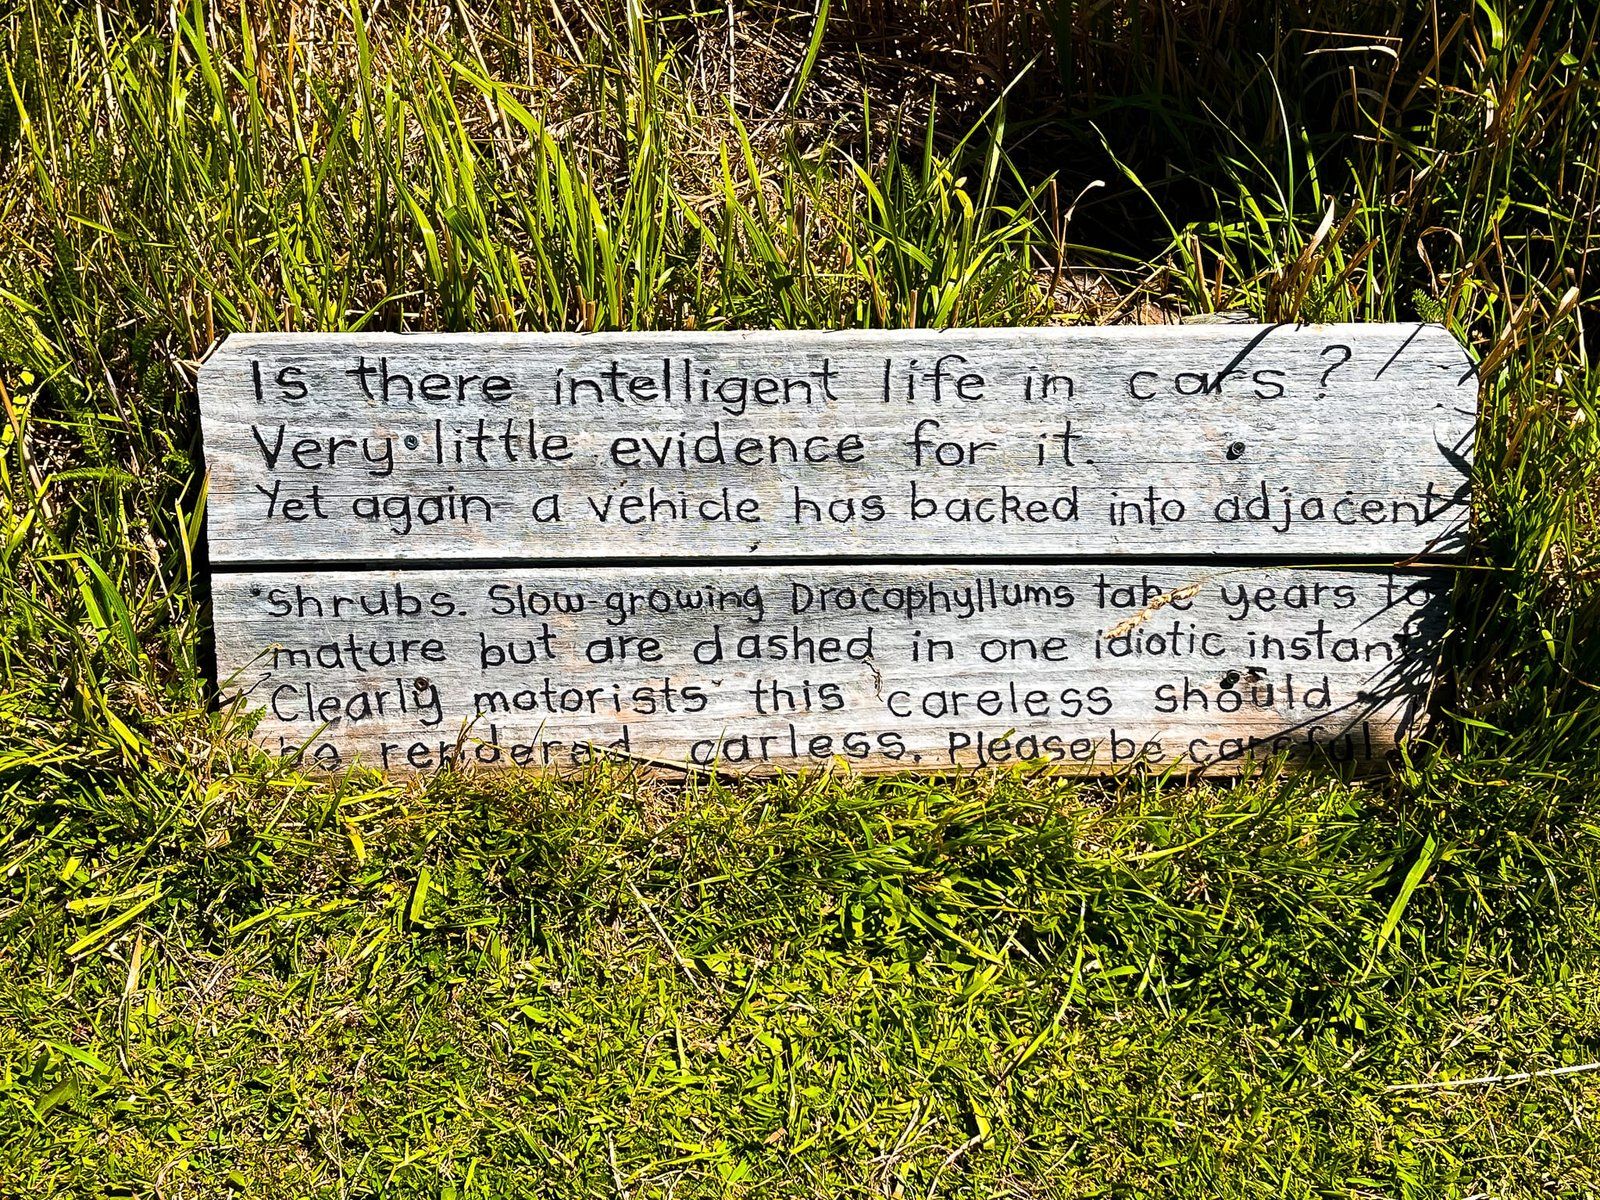 Is there intelligent life in cars?
Very little evidence for it.
Yet again a vehicle has backed into adjacent
shrubs. Slow-growing Dracophyllums take years to
mature but are dashed in one idiotic instant
Clearly motorists this careless should
be rendered carless. Please be careful.